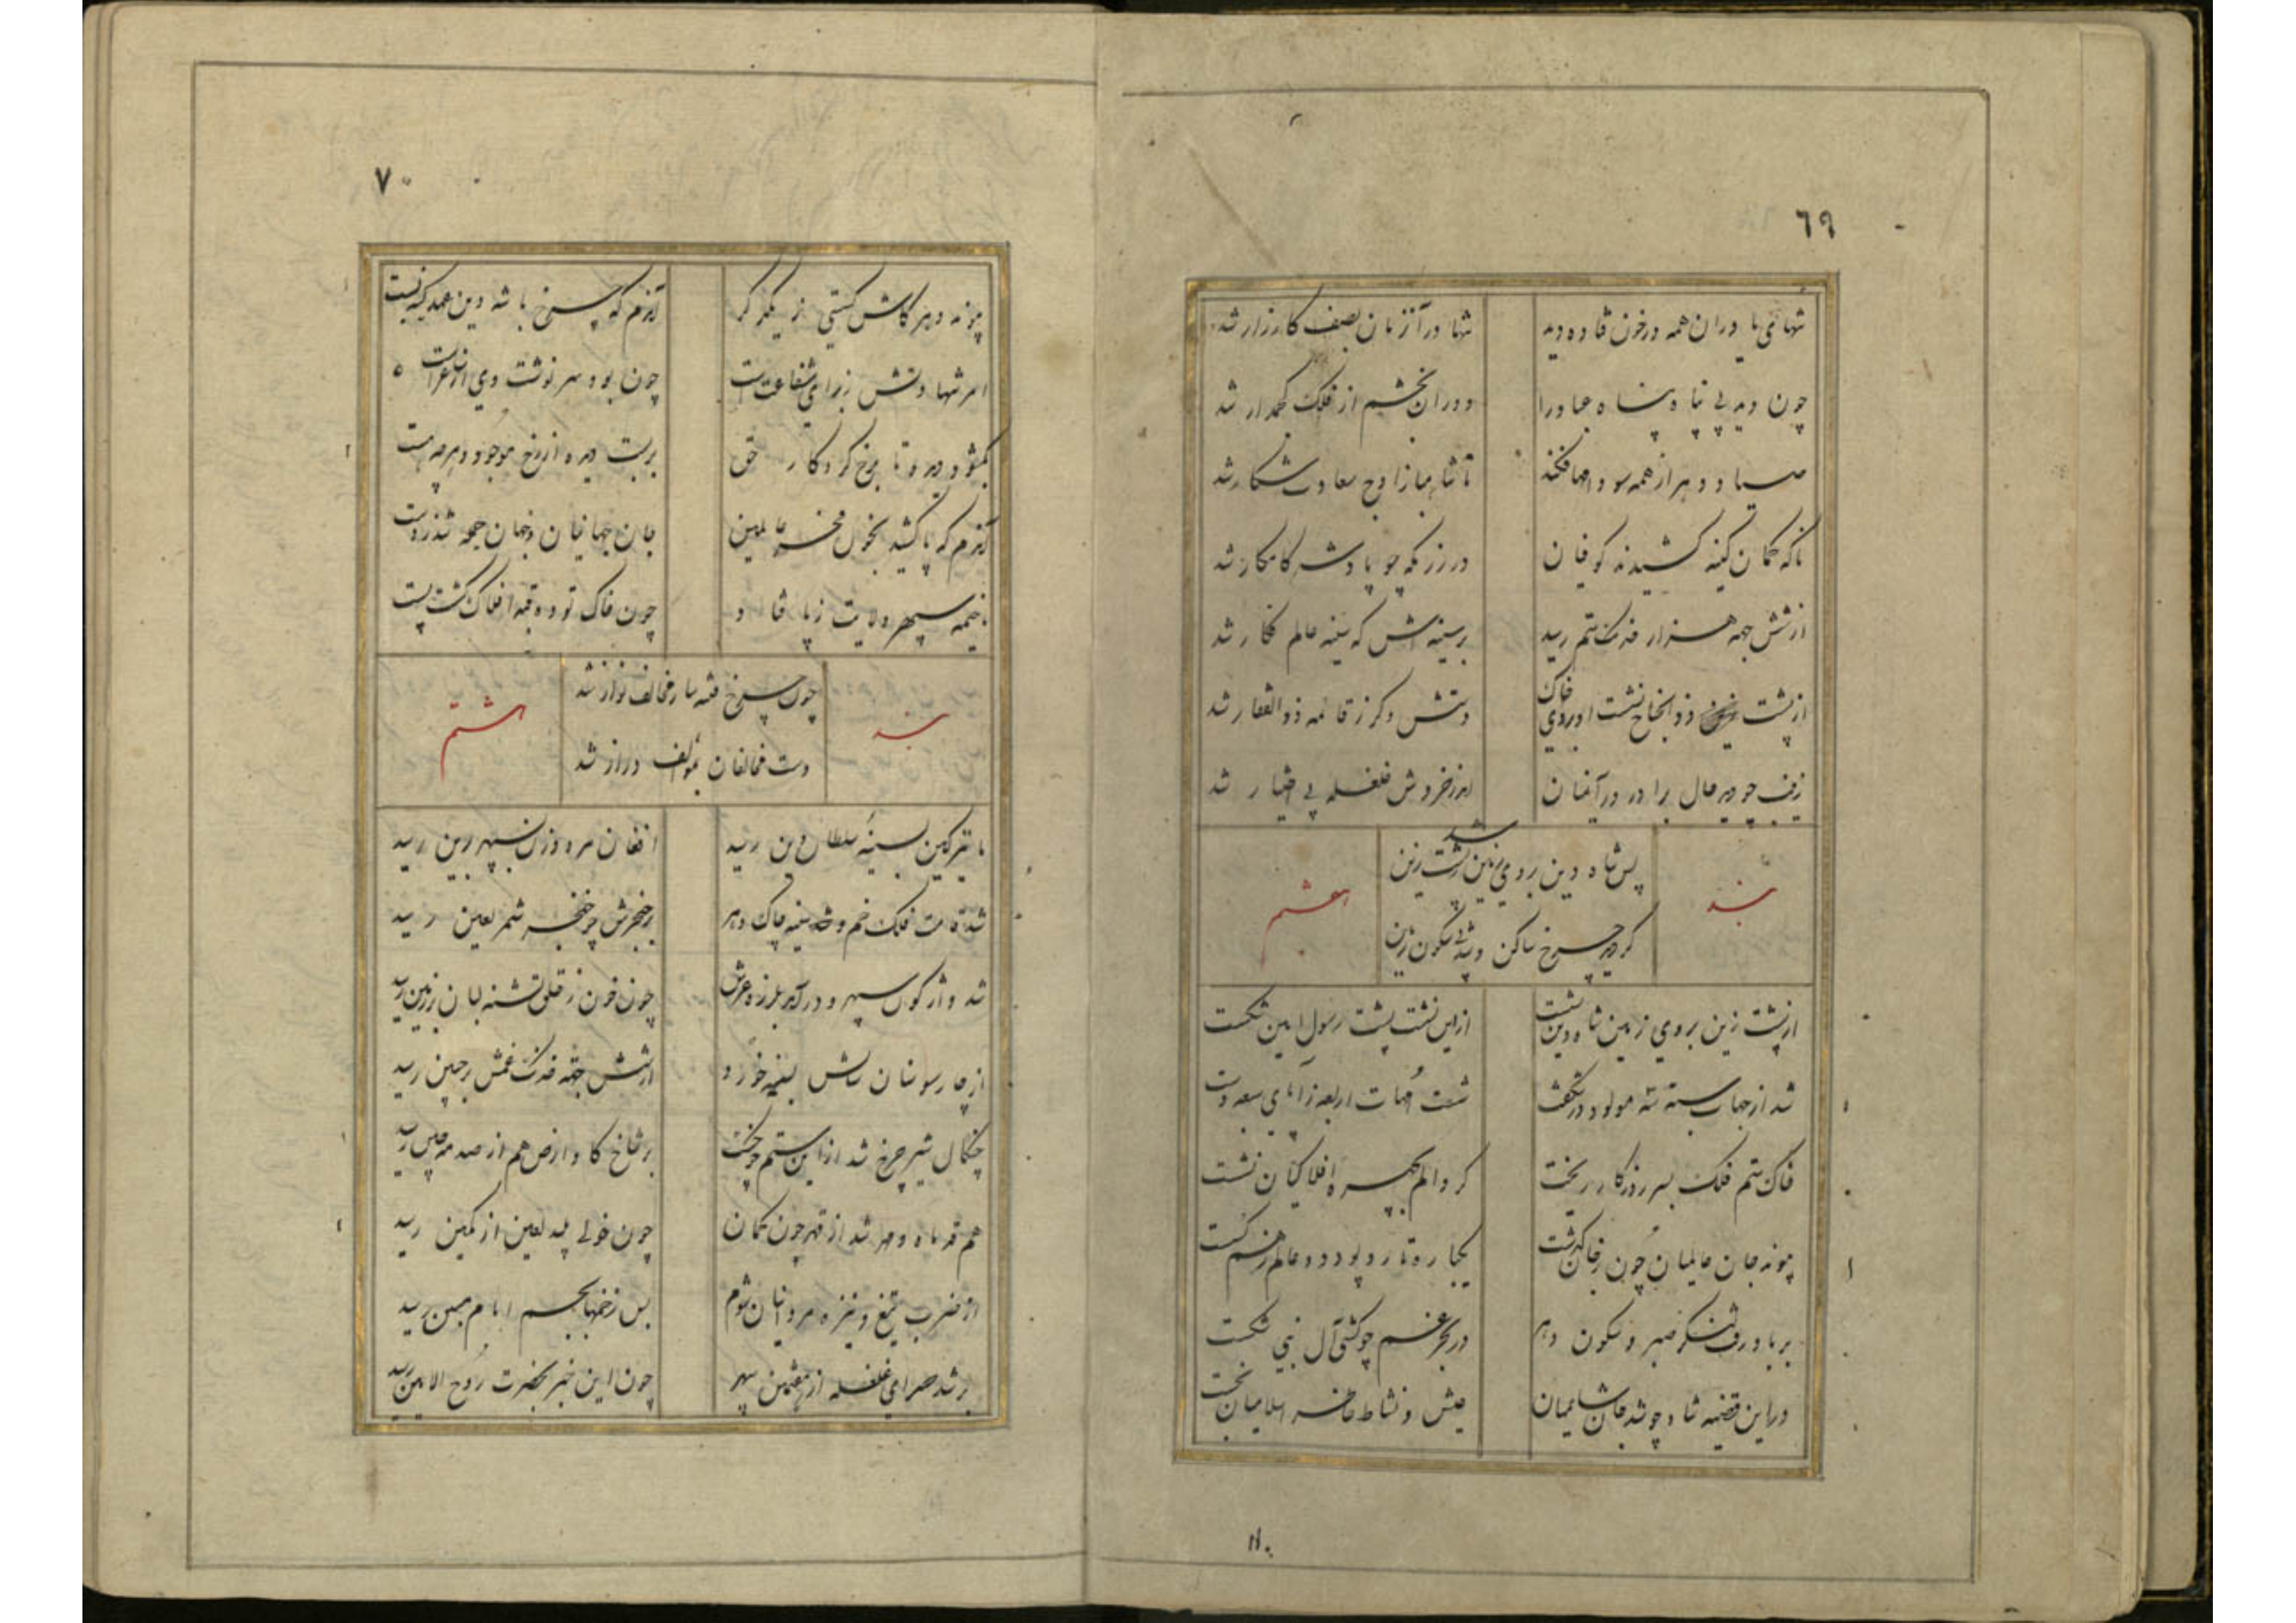 ٦٩
تنهای یاوران همه در خون فتاده دید
تنها در آنزمان بصف کارزار شد
چون دید بی پناه پناه عباد را
دوران بخشم از فلک کجمدار شد
صیاد دهر از همه سو دامها فکند
تا شاهباز اوج سعادت شکار شد
ناگه کمان کینه کشیدند کوفیان
در رزمگه چو پادشه کامکار شد
از شش جهه هزار خدنک ستم رسید
بر سینه‌اش که سینه عالم فکار شد
از پشت ذوالجناح نشست او بروی خاک
دستش دگر ز قائمه ذوالفقار شد
زینب چو دید حال برادر در آنمیان
اندر خروش غلغله بی اختیار شد
بند
پس شاه دین بروی زمین شد ز پشت زین
گردید چرخ ساکن و شد بی سکون زمین
هفتم
از پشت زین بروی زمین شاه دین نشست
از این نشست پشت رسول امین شکست
شد از جهات سته سه مولود در شگفت
شست امهات اربعه ز آبای سبعه دست
خاک ستم فلک بسر روزگار ریخت
گرد الم بچهره افلاکیان نشست
پیوند جان عالمیان چون ز جان گذشت
یکباره تار و پود دو عالم ز هم گسست
بر باد رفت لنگر صبر و سکون دهر
در بحر غم چو کشتی آل نبی شکست
در این قضیه شاد چو شد جان شامیان
عیش و نشاط خاطر اسلامیان بخست
٧٠
پیوند دهر کاش گسستی ز یکدگر
آندم که چرخ با شه دین عهد کینه بست
امر شهادتش ز برای شفاعت است
چون بود سرنوشت وی از روز الست
بگشود دیده تا برخ کردگار حق
بربست دیده از رخ موجود و هرچه هست
آندم که پا کشید بخون فخر عالمین
جان جهانیان و جهان جمله شد ز دست
تا خیمه سپهر ولایت ز پا فتاد
چون خاک توده قبه افلاک گشت پست
بند
چون چرخ فتنه ساز مخالف نواز شد
دست مخالفان بمؤالف دراز شد
هشتم
تا تیر کین بسینه سلطان دین رسید
افغان مرد و زن بسپهر برین رسید
شد قامت فلک خم و شد سینه چاک دهر
بر حنجرش چو خنجر شمر لعین رسید
شد واژگون سپهر و درآمد بلرزه عرش
چون خون ز حلق تشنه لبان بر زمین رسید
از چارسو سنان سنانش بسینه خورد
از شش جهه خدنک غمش بر جبین رسید
چنگال شیر چرخ شد از این ستم چو سخت
بر شاخ گاو ارض هم از صدمه چین رسید
هم قد ماه و مهر شد از قهر چون کمان
چون خولی پلید لعین از کمین رسید
از ضرب تیغ و نیزه مردانیان شوم
بس زخمها بجسم امام مبین رسید
بر شد صدای غلغله از هفتمین سپهر
چون این خبر بحضرت روح الامین رسید